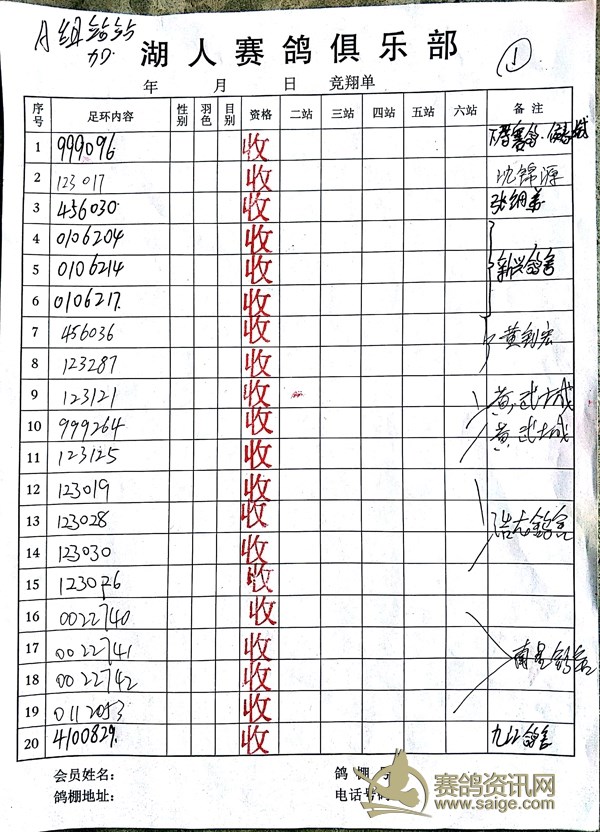 A组站站
加
湖人赛鸽俱乐部
①
年 月 日 竞翔单
序号 足环内容 性别 羽色 目别 资格 二站 三站 四站 五站 六站 备注
1 999096 收
2 123017 收 沈锦源
3 456030 收
4 0106204 收
5 0106214 收 新兴鸽舍
6 0106217 收
7 456036 收 黄剑宏
8 123287 收
9 123121 收 黄武大城
10 999264 收 黄武大城
11 123125 收
12 123019 收
13 123028 收 浩龙鸽舍
14 123030 收
15 收
16 0022740 收
17 0022741 收 南星鸽舍
18 0022742 收
19 0112053 收
20 4100829 收 九江鸽舍
会员姓名： 鸽棚
鸽棚地址： 电话号码
赛鸽资讯网
www.saige.com